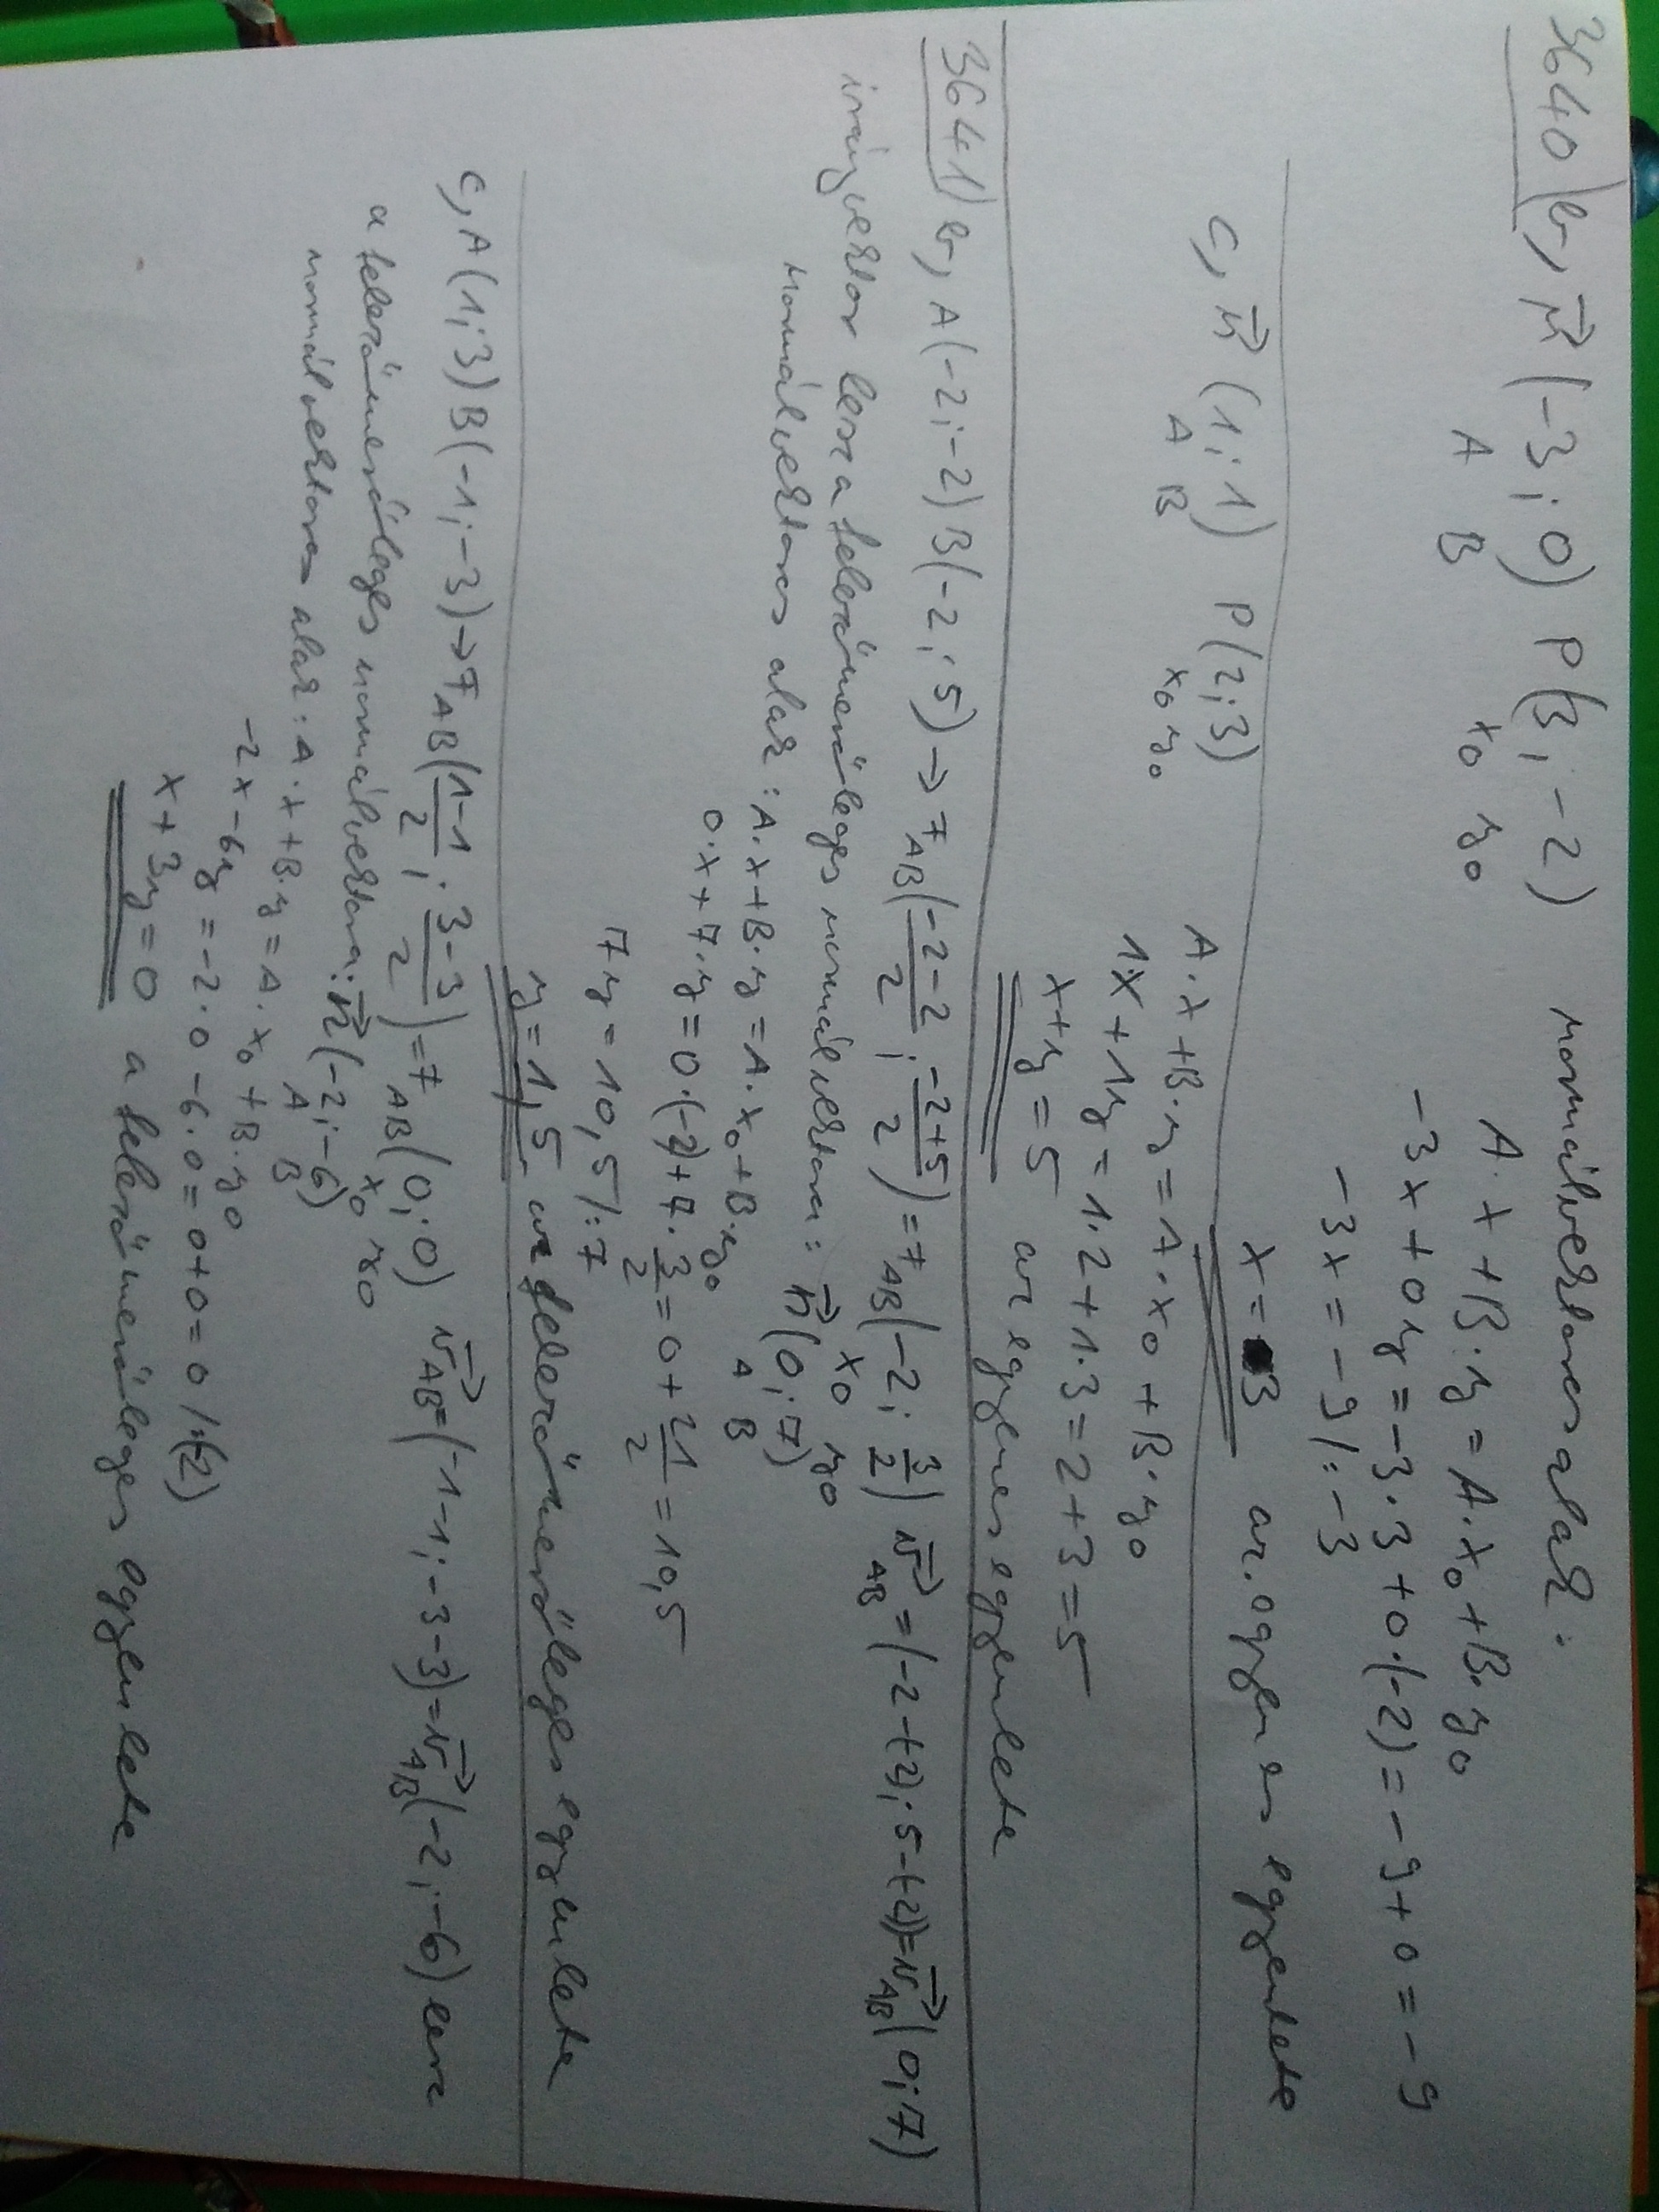 3640) b, n⃗ (-3; 0) P(3; -2) normálvektoros alak:
A B x₀ y₀ A·x + B·y = A·x₀ + B·y₀
-3x + 0y = -3·3 + 0·(-2) = -9 + 0 = -9
-3x = -9 /: -3
x = 3 az egyenes egyenlete
c, n⃗ (1; 1) P(2; 3) A·x + B·y = A·x₀ + B·y₀
A B x₀ y₀ 1x + 1y = 1·2 + 1·3 = 2 + 3 = 5
x + y = 5 az egyenes egyenlete
3641) b, A(-2; -2) B(-2; 5) → F_AB(-2-2/2; -2+5/2) = F_AB(-2; 3/2) v⃗_AB = (-2-(-2); 5-(-2)) = v⃗_AB(0; 7)
x₀ y₀
irányvektor lesz a felezőmerőleges normálvektora: n⃗ (0; 7)
A B
normálvektoros alak: A·x + B·y = A·x₀ + B·y₀
0·x + 7·y = 0·(-2) + 7·3/2 = 0 + 21/2 = 10,5
7y = 10,5 /: 7
y = 1,5 az felezőmerőleges egyenlete
c, A(1; 3) B(-1; -3) → F_AB(1-1/2; 3-3/2) = F_AB(0; 0) v⃗_AB = (-1-1; -3-3) = v⃗_AB(-2; -6) ez
x₀ y₀
a felezőmerőleges normálvektora: n⃗ (-2; -6)
A B
normálvektoros alak: A·x + B·y = A·x₀ + B·y₀
-2x - 6y = -2·0 - 6·0 = 0 + 0 = 0 /:(-2)
x + 3y = 0 a felezőmerőleges egyenlete